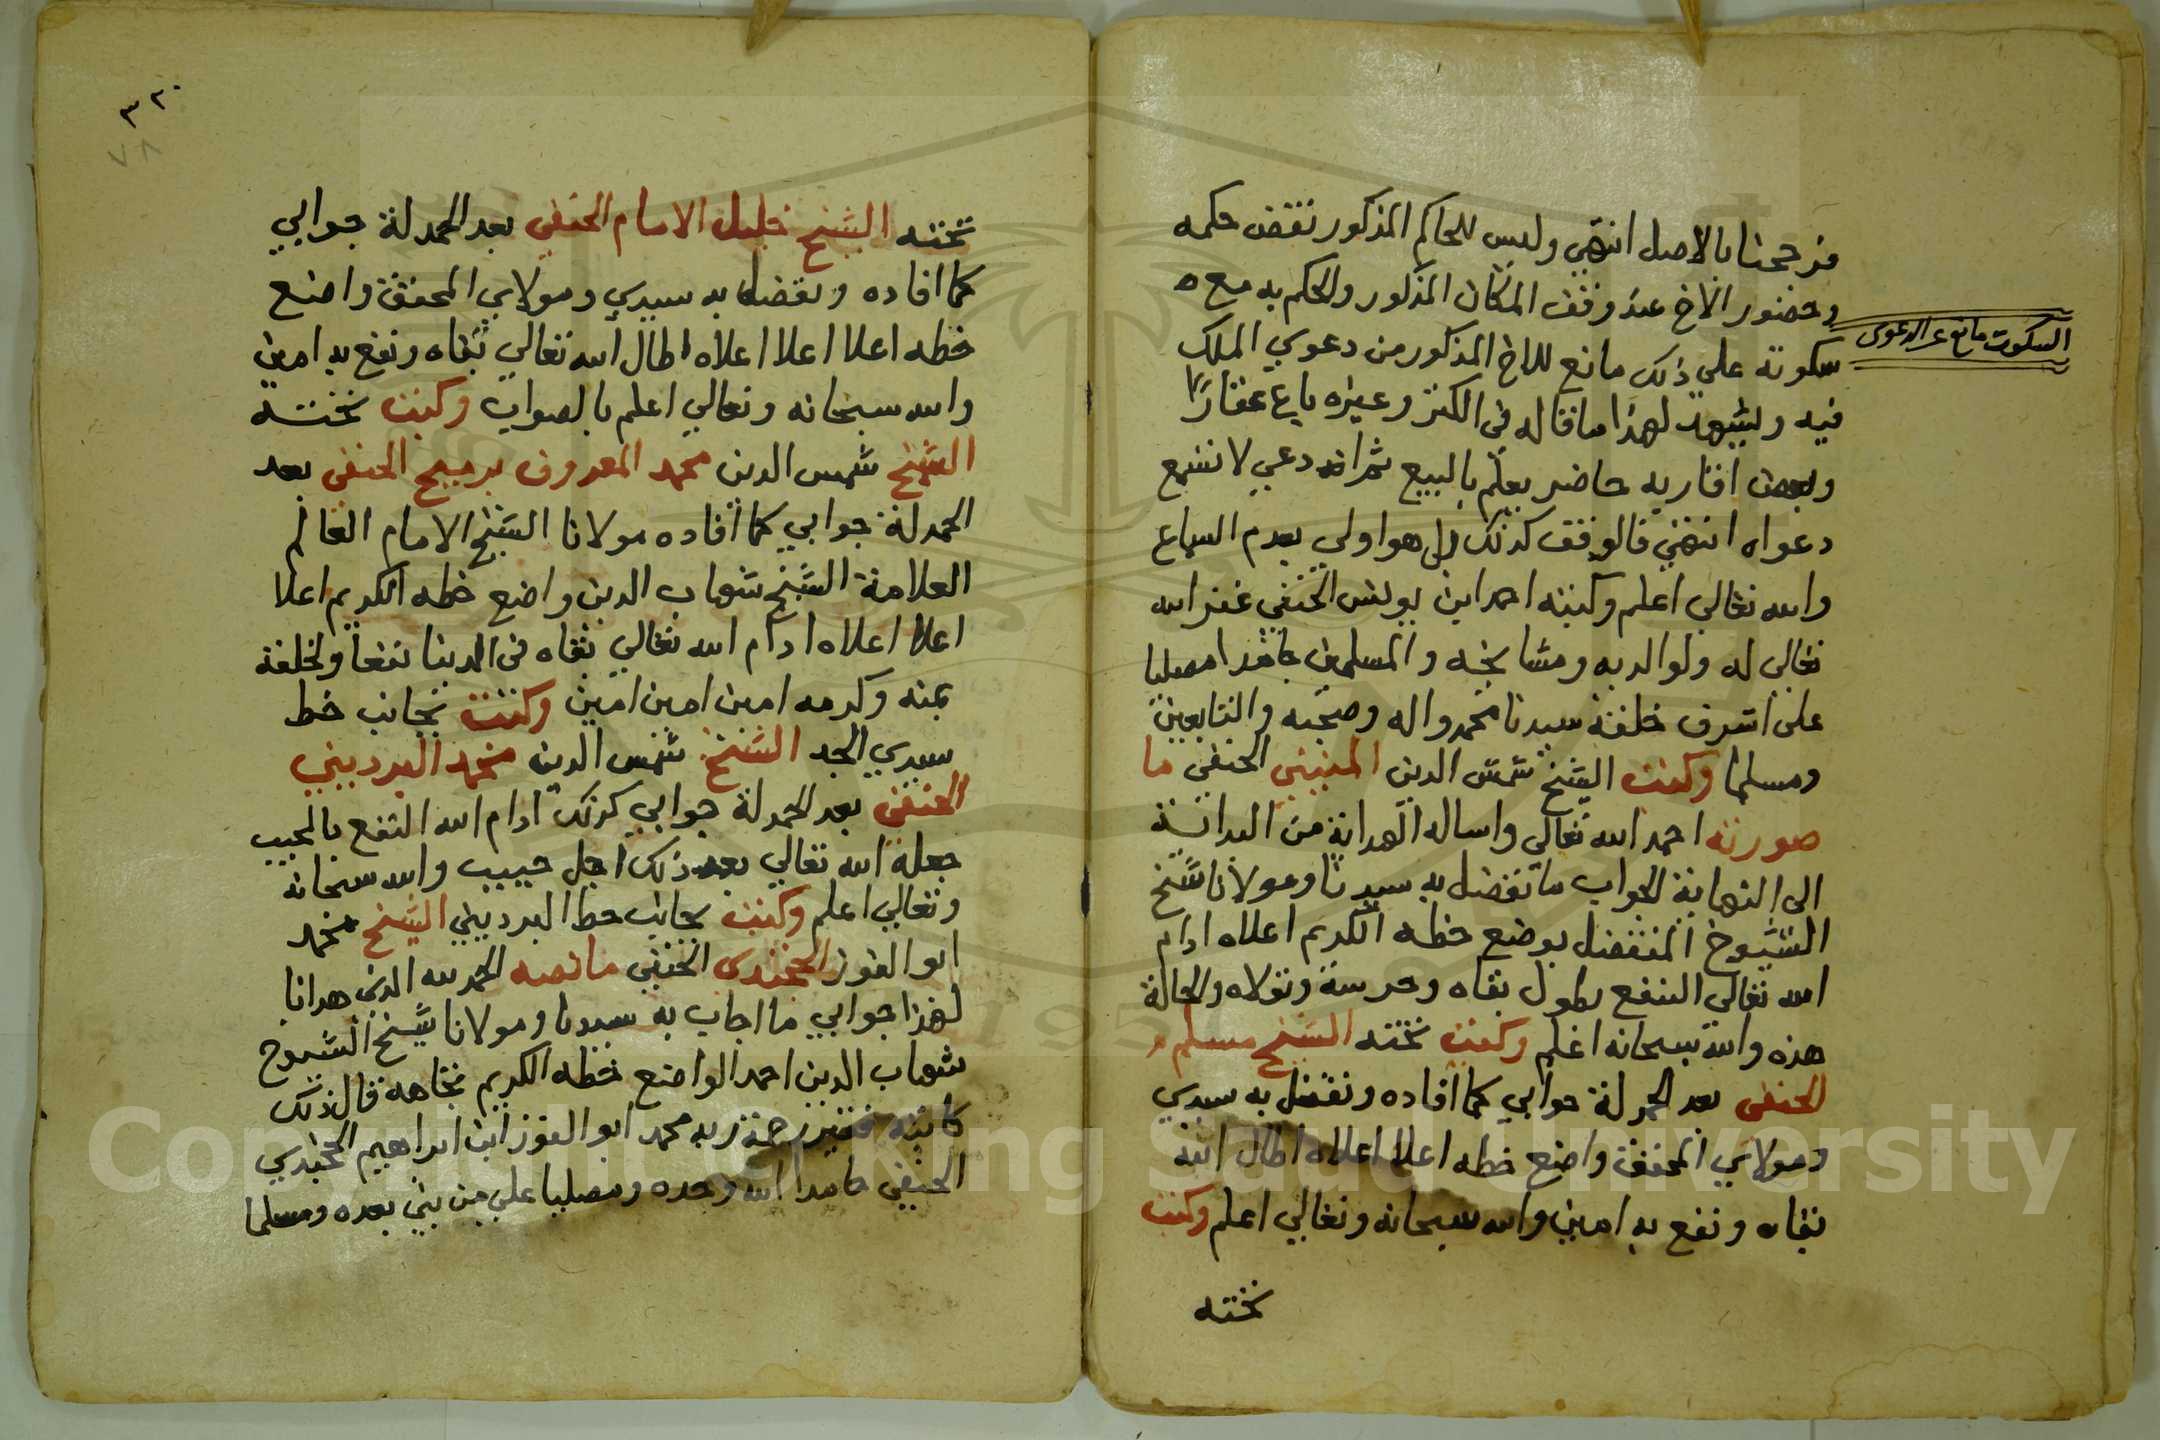 فرجحنا بالاصل انتهي وليس للحاكم المذكور نقض حكمه
وحضور الاخ عند وقف المكان المذكور والحكم به مع ه
سكوته علي ذلك مانع للاخ المذكور من دعوي الملك
السكوت مانع عن الدعوى
فيه ويشهد لهذا ما قاله في الكنز وغيره باع عقارًا
وبعض اقاربه حاضر يعلم بالبيع ثم ادعي لا تسمع
دعواه انتهي فالوقف كذلك بل هو اولي بعدم السماع
والله تعالي اعلم وكتبه احمد ابن يونس الحنفي غفر الله
تعالى له ولوالديه ومشايخه والمسلمين حامدا مصليا
على اشرف خلقه سيدنا محمد واله وصحبه والتابعين
ومسلما وكتب الشيخ شمس الدين الحنفي ما
صورته احمد الله تعالى واساله الهداية من البداية
الى النهاية الجواب ما تفضل به سيدنا ومولانا شيخ
الشيوخ المتفضل بوضع خطه الكريم اعلاه ادام
الله تعالى النفع بطول بقاه وحرسه وتولاه والحالة
هذه والله سبحانه اعلم وكتب تحته الشيخ مسلم
الحنفى بعد الحمدلة جوابي كما افاده وتفضل به سيدي
ومولاي المحقق واضع خطه اعلا اعلاه اطال الله
بقاه ونفع به امين والله سبحانه وتعالي اعلم وكتب
تحته
٣٢٠
٧٨
تحته الشيخ خليل الامام الحنفي بعد الحمدلة جوابي
كما افاده وتفضل به سيدي ومولاي المحقق واضع
خطه اعلا اعلا اعلاه اطال الله تعالي بقاه ونفع به امين
والله سبحانه وتعالي اعلم بالصواب وكتب تحته
الشيخ شمس الدين محمد المعروف الحنفي بعد
الحمدلة جوابي كما افاده مولانا الشيخ الامام العالم
العلامة الشيخ شهاب الدين واضع خطه الكريم اعلا
اعلا اعلاه ادام الله تعالي بقاه في الدنيا نفعا لخلقه
بمنه وكرمه امين امين امين وكتب بجانب خط
سيدي الجد الشيخ شمس الدين محمد البرديني
الحنفي بعد الحمدلة جوابي كذلك ادام الله النفع بالمجيب
جعله الله تعالي بعد ذلك اجل حبيب والله سبحانه
وتعالي اعلم وكتب بجانب خط البرديني الشيخ محمد
ابو الفوز الخجندى الحنفي ما نصه الحمد لله الذي هدانا
لهذا جوابي ما اجاب به سيدنا ومولانا شيخ الشيوخ
شهاب الدين احمد الواضع خطه الكريم تجاهه قال ذلك
كاتبه فقير رحمة ربه محمد ابو الفوز ابن ابراهيم الخجندي
الحنفي حامدا الله وحده ومصليا علي من نبي بعده ومسلما
Copyright © King Saud University